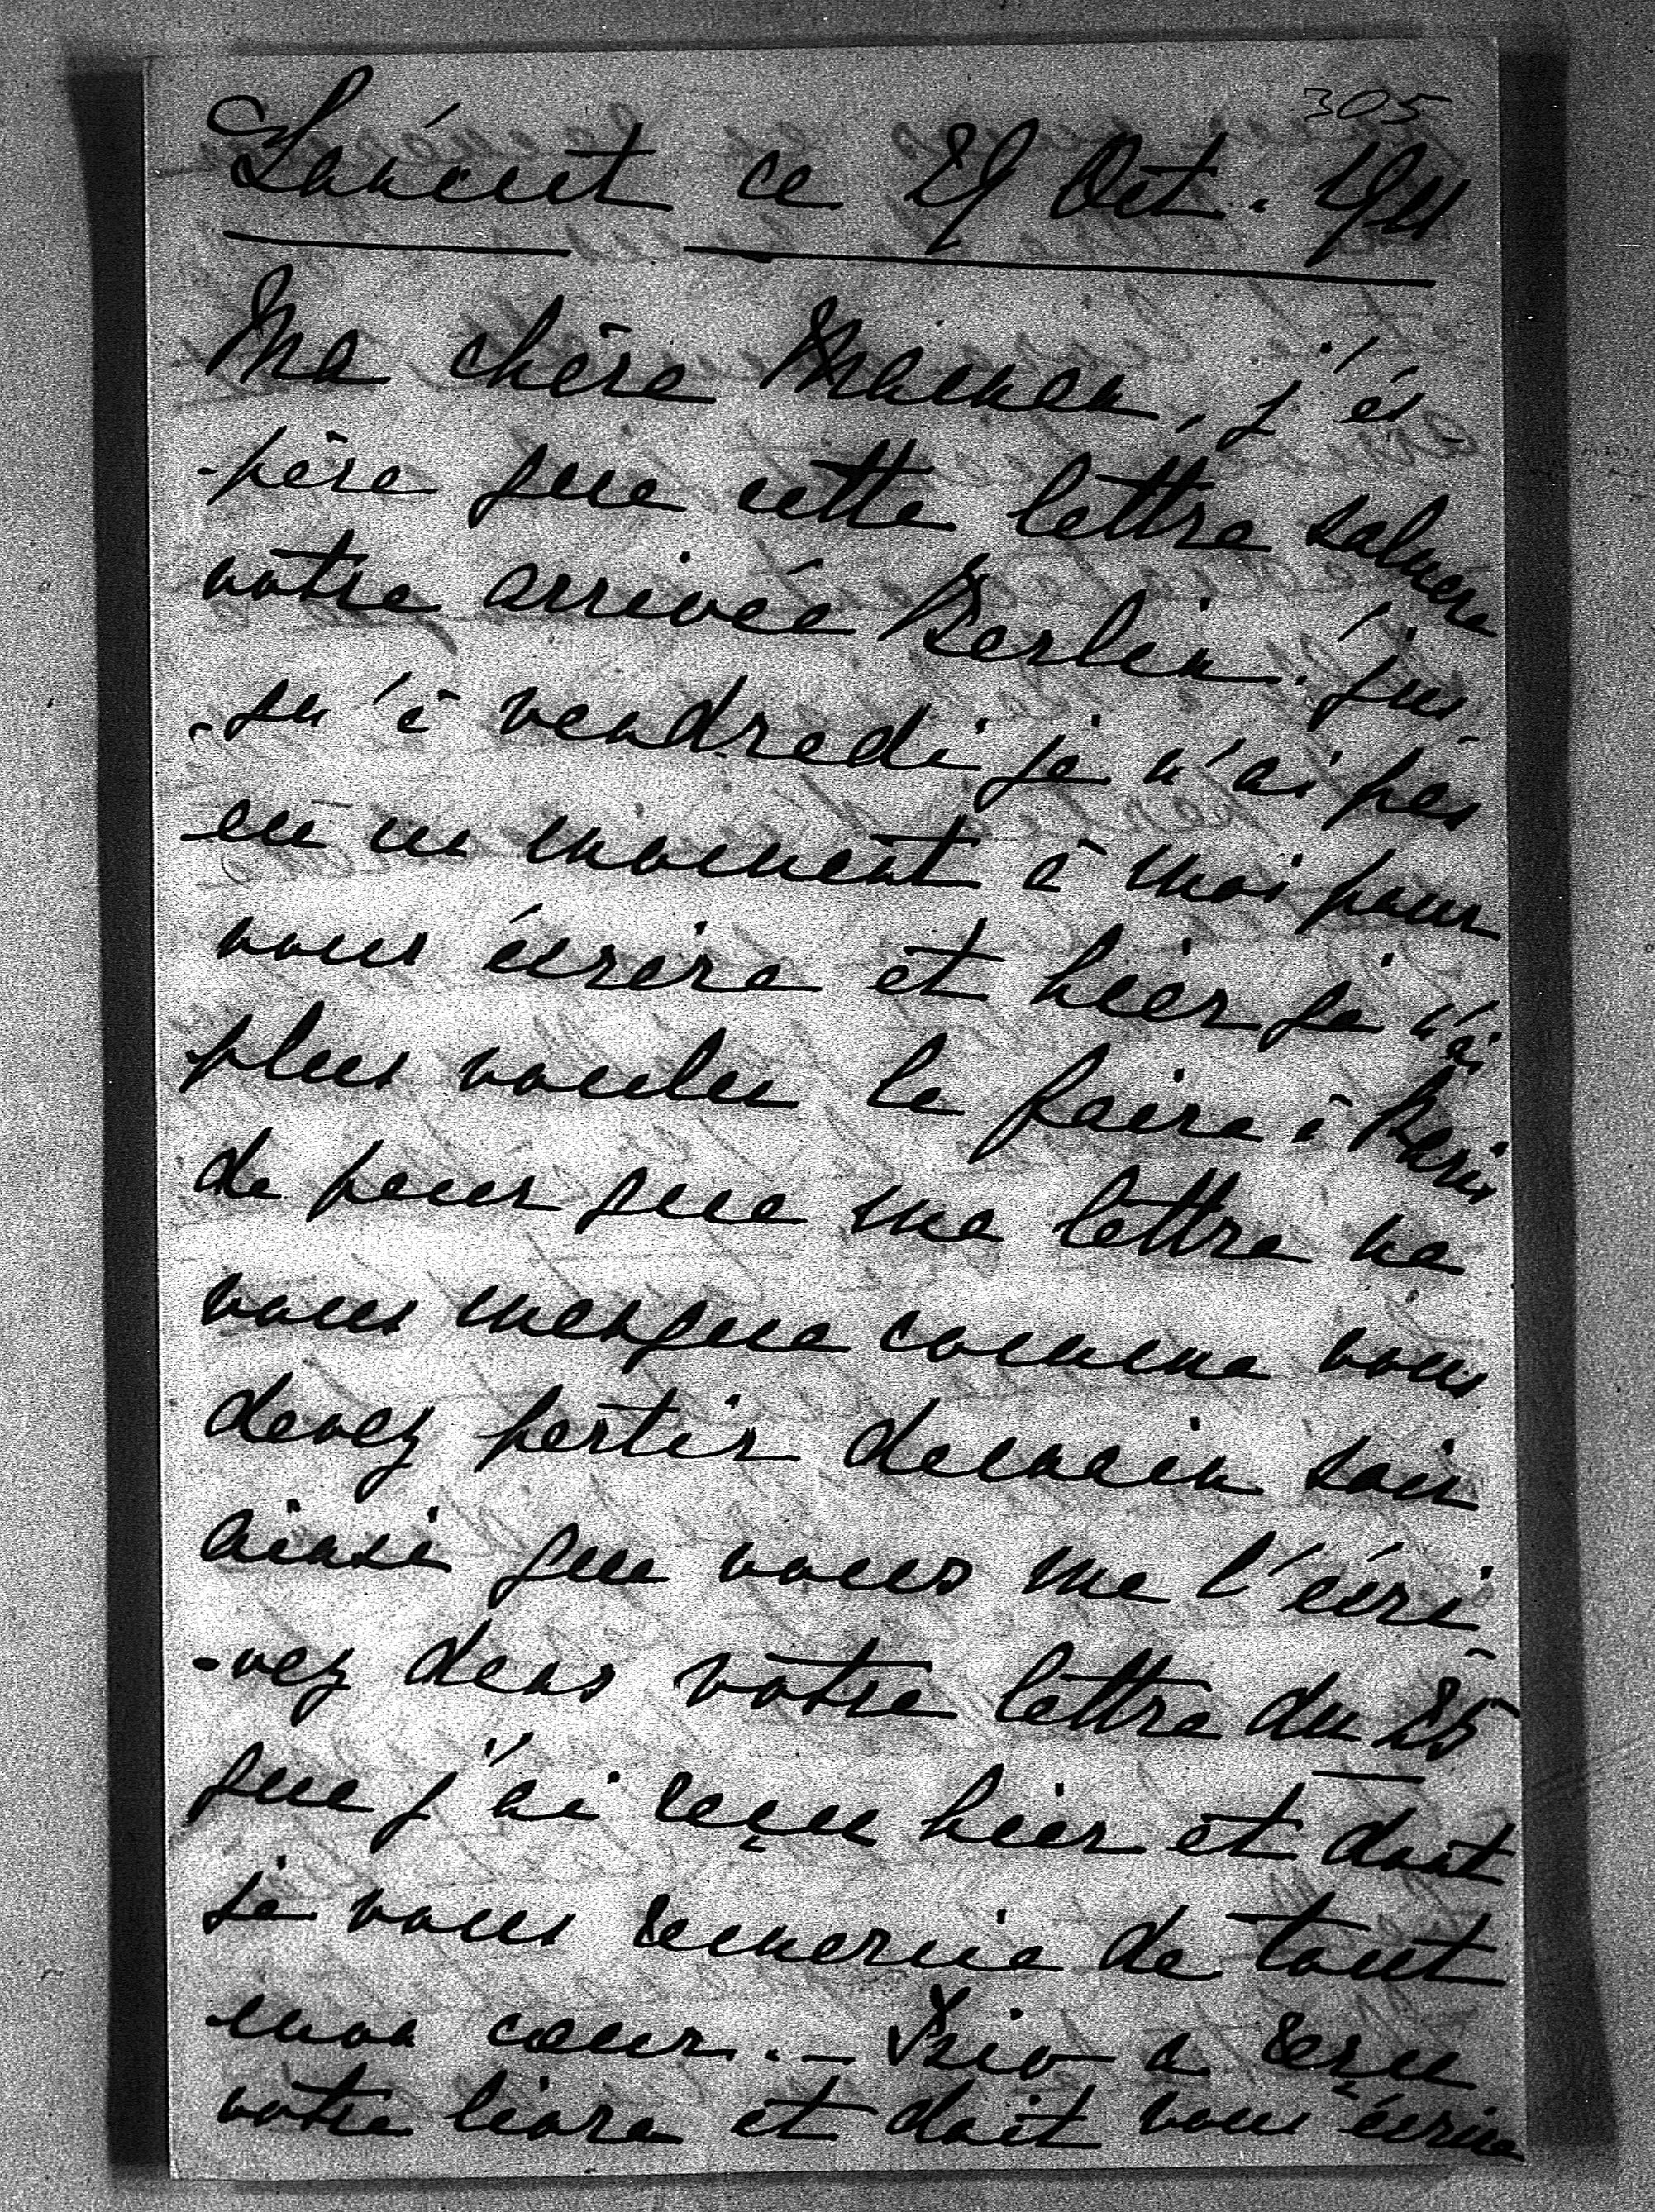 305
Lancut ce 29 Oct. 1911
Ma chère Maman, j'es-
-père que cette lettre saluera
votre arrivée Berlin. Jus-
-qu'à vendredi je n'ai pas
eu un moment à moi pour
vous écrire et hier je n'ai
plus voulu le faire à Paris
de peur que ma lettre ne
vous manque comme vous
devez partir demain soir
ainsi que vous me l'écri-
-vez dans votre lettre du 25
que j'ai reçue hier et dont
je vous remercie de tout
mon cœur. — a reçu
votre livre et doit vous écrire